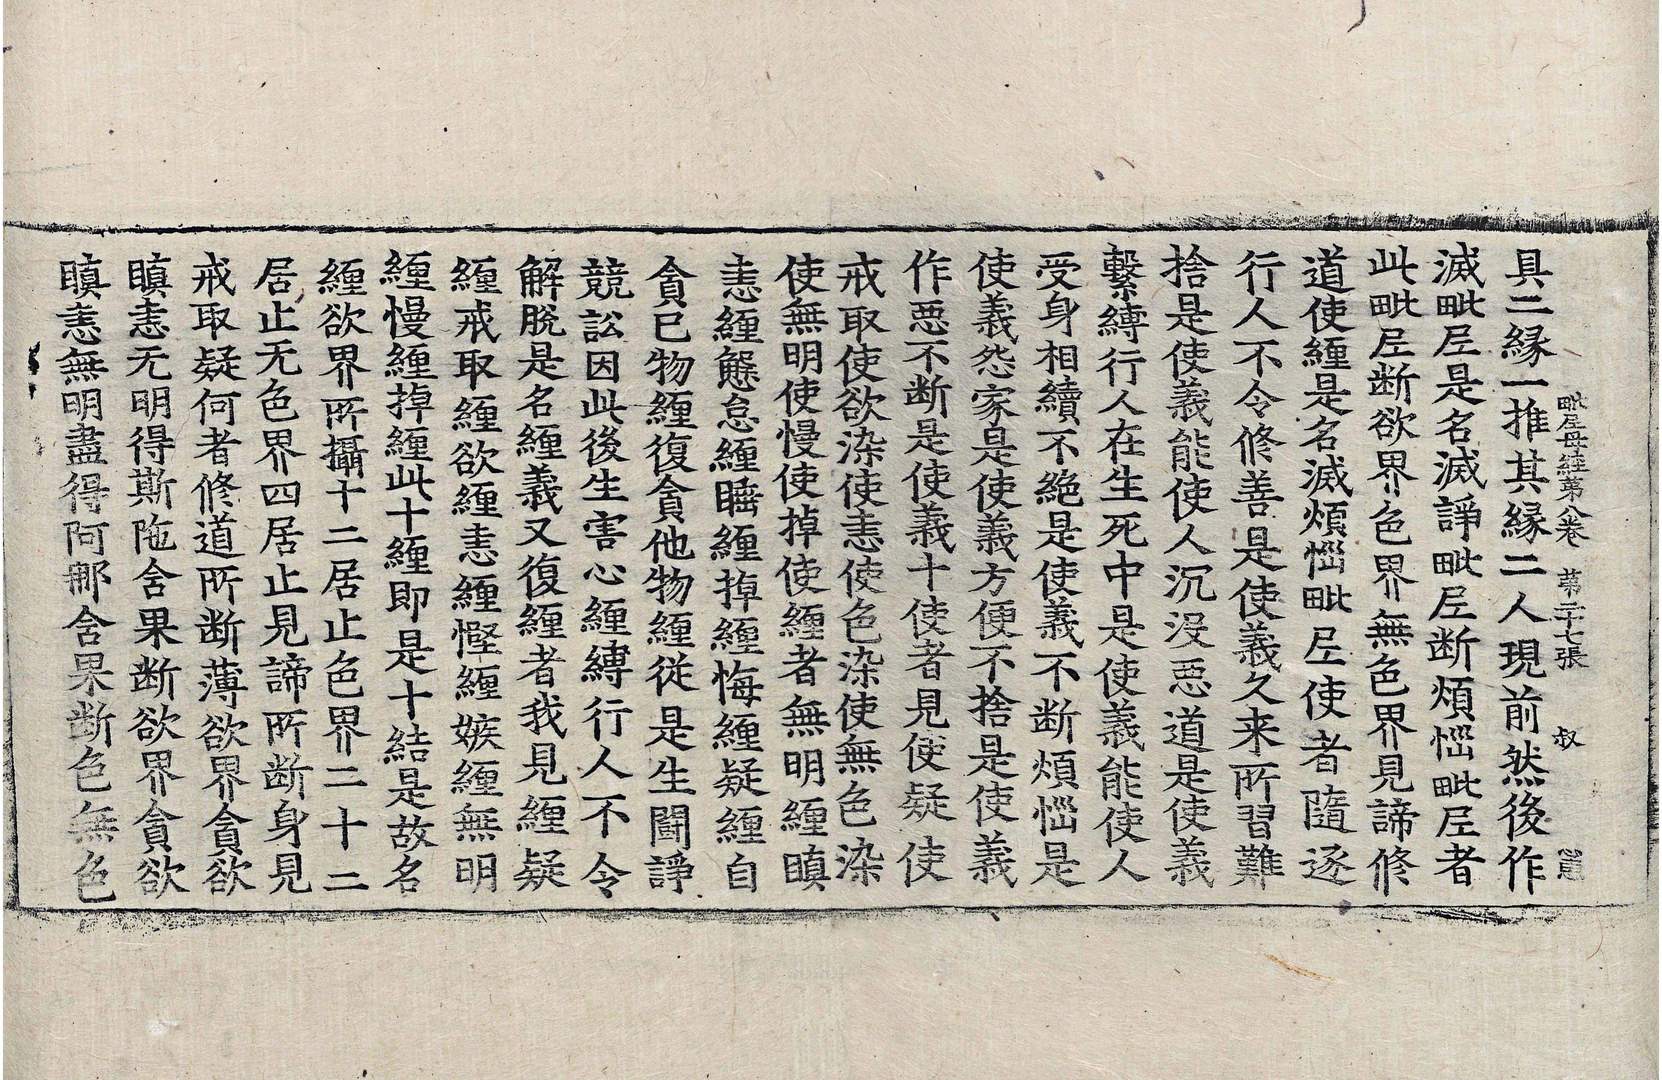 毗𡰱母經第八卷　第二十七張　叔
具二縁一推其縁二人現前然後作
滅毗𡰱是名滅諍毗𡰱断煩惱毗𡰱者
此毗𡰱断欲界色界無色界見諦修
道使纏是名滅煩惱毗𡰱使者隨逐
行人不令修善是使義久来所習難
捨是使義能使人沉没惡道是使義
繫縛行人在生死中是使義能使人
受身相續不絶是使義不断煩惱是
使義怨家是使義方便不捨是使義
作惡不断是使義十使者見使疑使
戒取使欲染使恚使色染使無色染
使無明使慢使掉使纏者無明纏瞋
恚纏懈怠纏睡纏掉纏悔纏疑纏自
貪已物纏復貪他物纏從是生鬪諍
競訟因此後生害心纏縛行人不令
解脫是名纏義又復纏者我見纏疑
纏戒取纏欲纏恚纏慳纏嫉纏無明
纏慢纏掉纏此十纏即是十結是故名
纏欲界所攝十二居止色界二十二
居止无色界四居止見諦所断身見
戒取疑何者修道所断薄欲界貪欲
瞋恚无明得斯陁含果断欲界貪欲
瞋恚無明盡得阿那含果断色無色